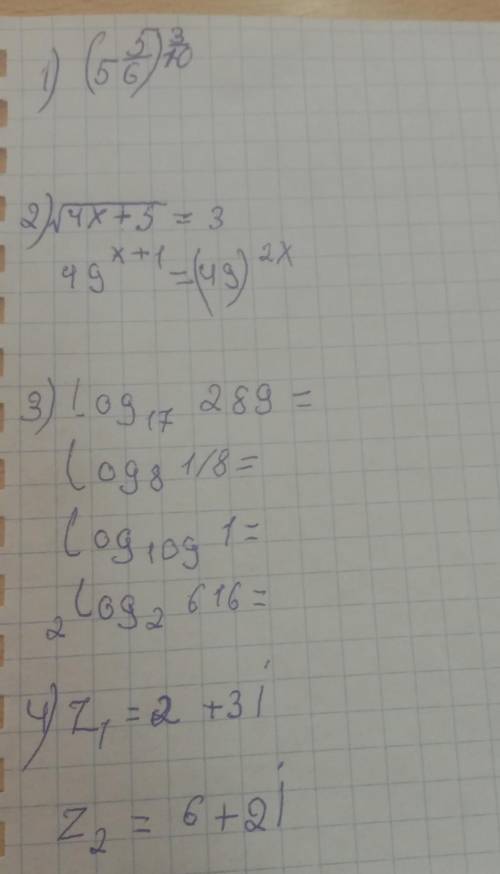 1) (5 5/6)^3/10
2) √4x+5 = 3
49^x+1 = (49)^2x
3) Log₁₇ 289 =
Log₈ 1/8 =
Log₁₀₉ 1 =
₂Log₂ 616 =
4) Z₁ = 2 + 3i
Z₂ = 6 + 2i